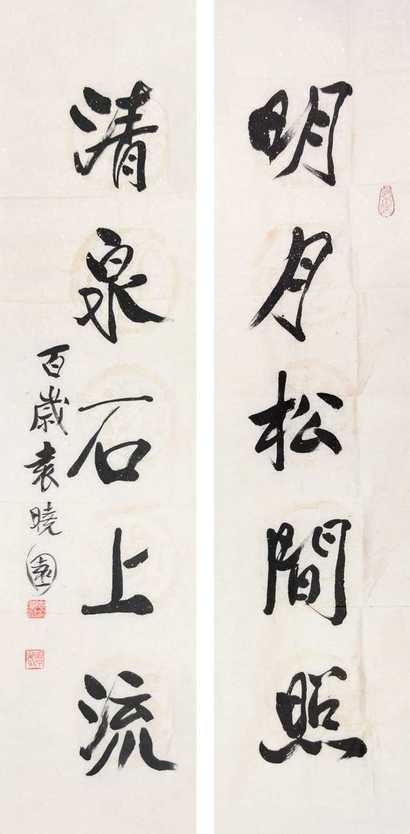 明月松間照
清泉石上流
百歲袁曉園